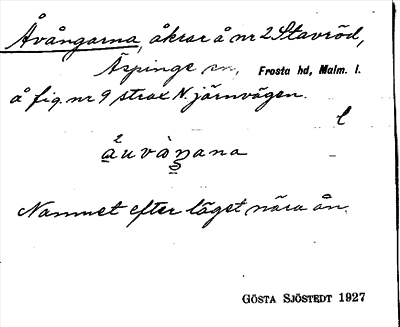 Åvångarna, åkrar å nr 2 Stavröd,
Äspinge sn, Frosta hd, Malm. l.
å fig. nr 9 strax N. järnvägen.
l
Namnet efter läget nära ån.
GÖSTA SJÖSTEDT 1927